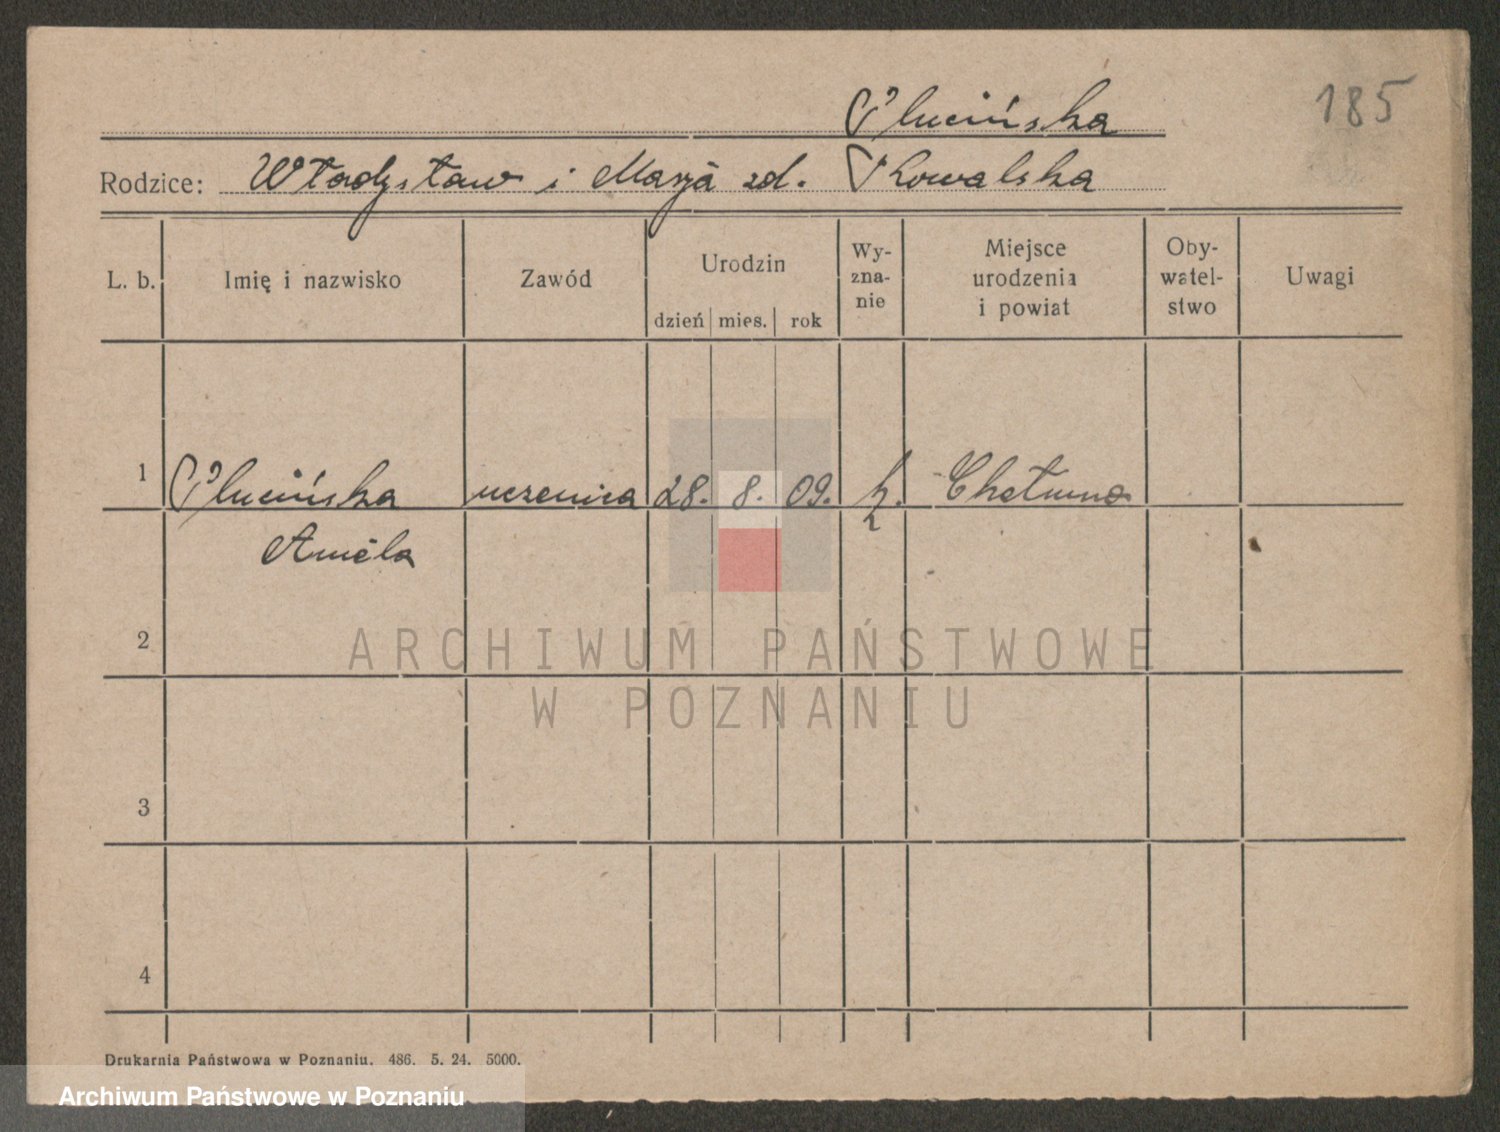 Plucińska
185
Rodzice: Władysław i Marja zd. Kowalska
L. b. Imię i nazwisko Zawód Urodzin dzień mies. rok Wy-zna-nie Miejsce urodzenia i powiat Oby-watel-stwo Uwagi
1 Plucińska uczenica 28. 8. 09. k. Chełmno
Aniela
2
ARCHIWUM PAŃSTWOWE
W POZNANIU
3
4
Drukarnia Państwowa w Poznaniu. 486. 5. 24. 5000.
Archiwum Państwowe w Poznaniu